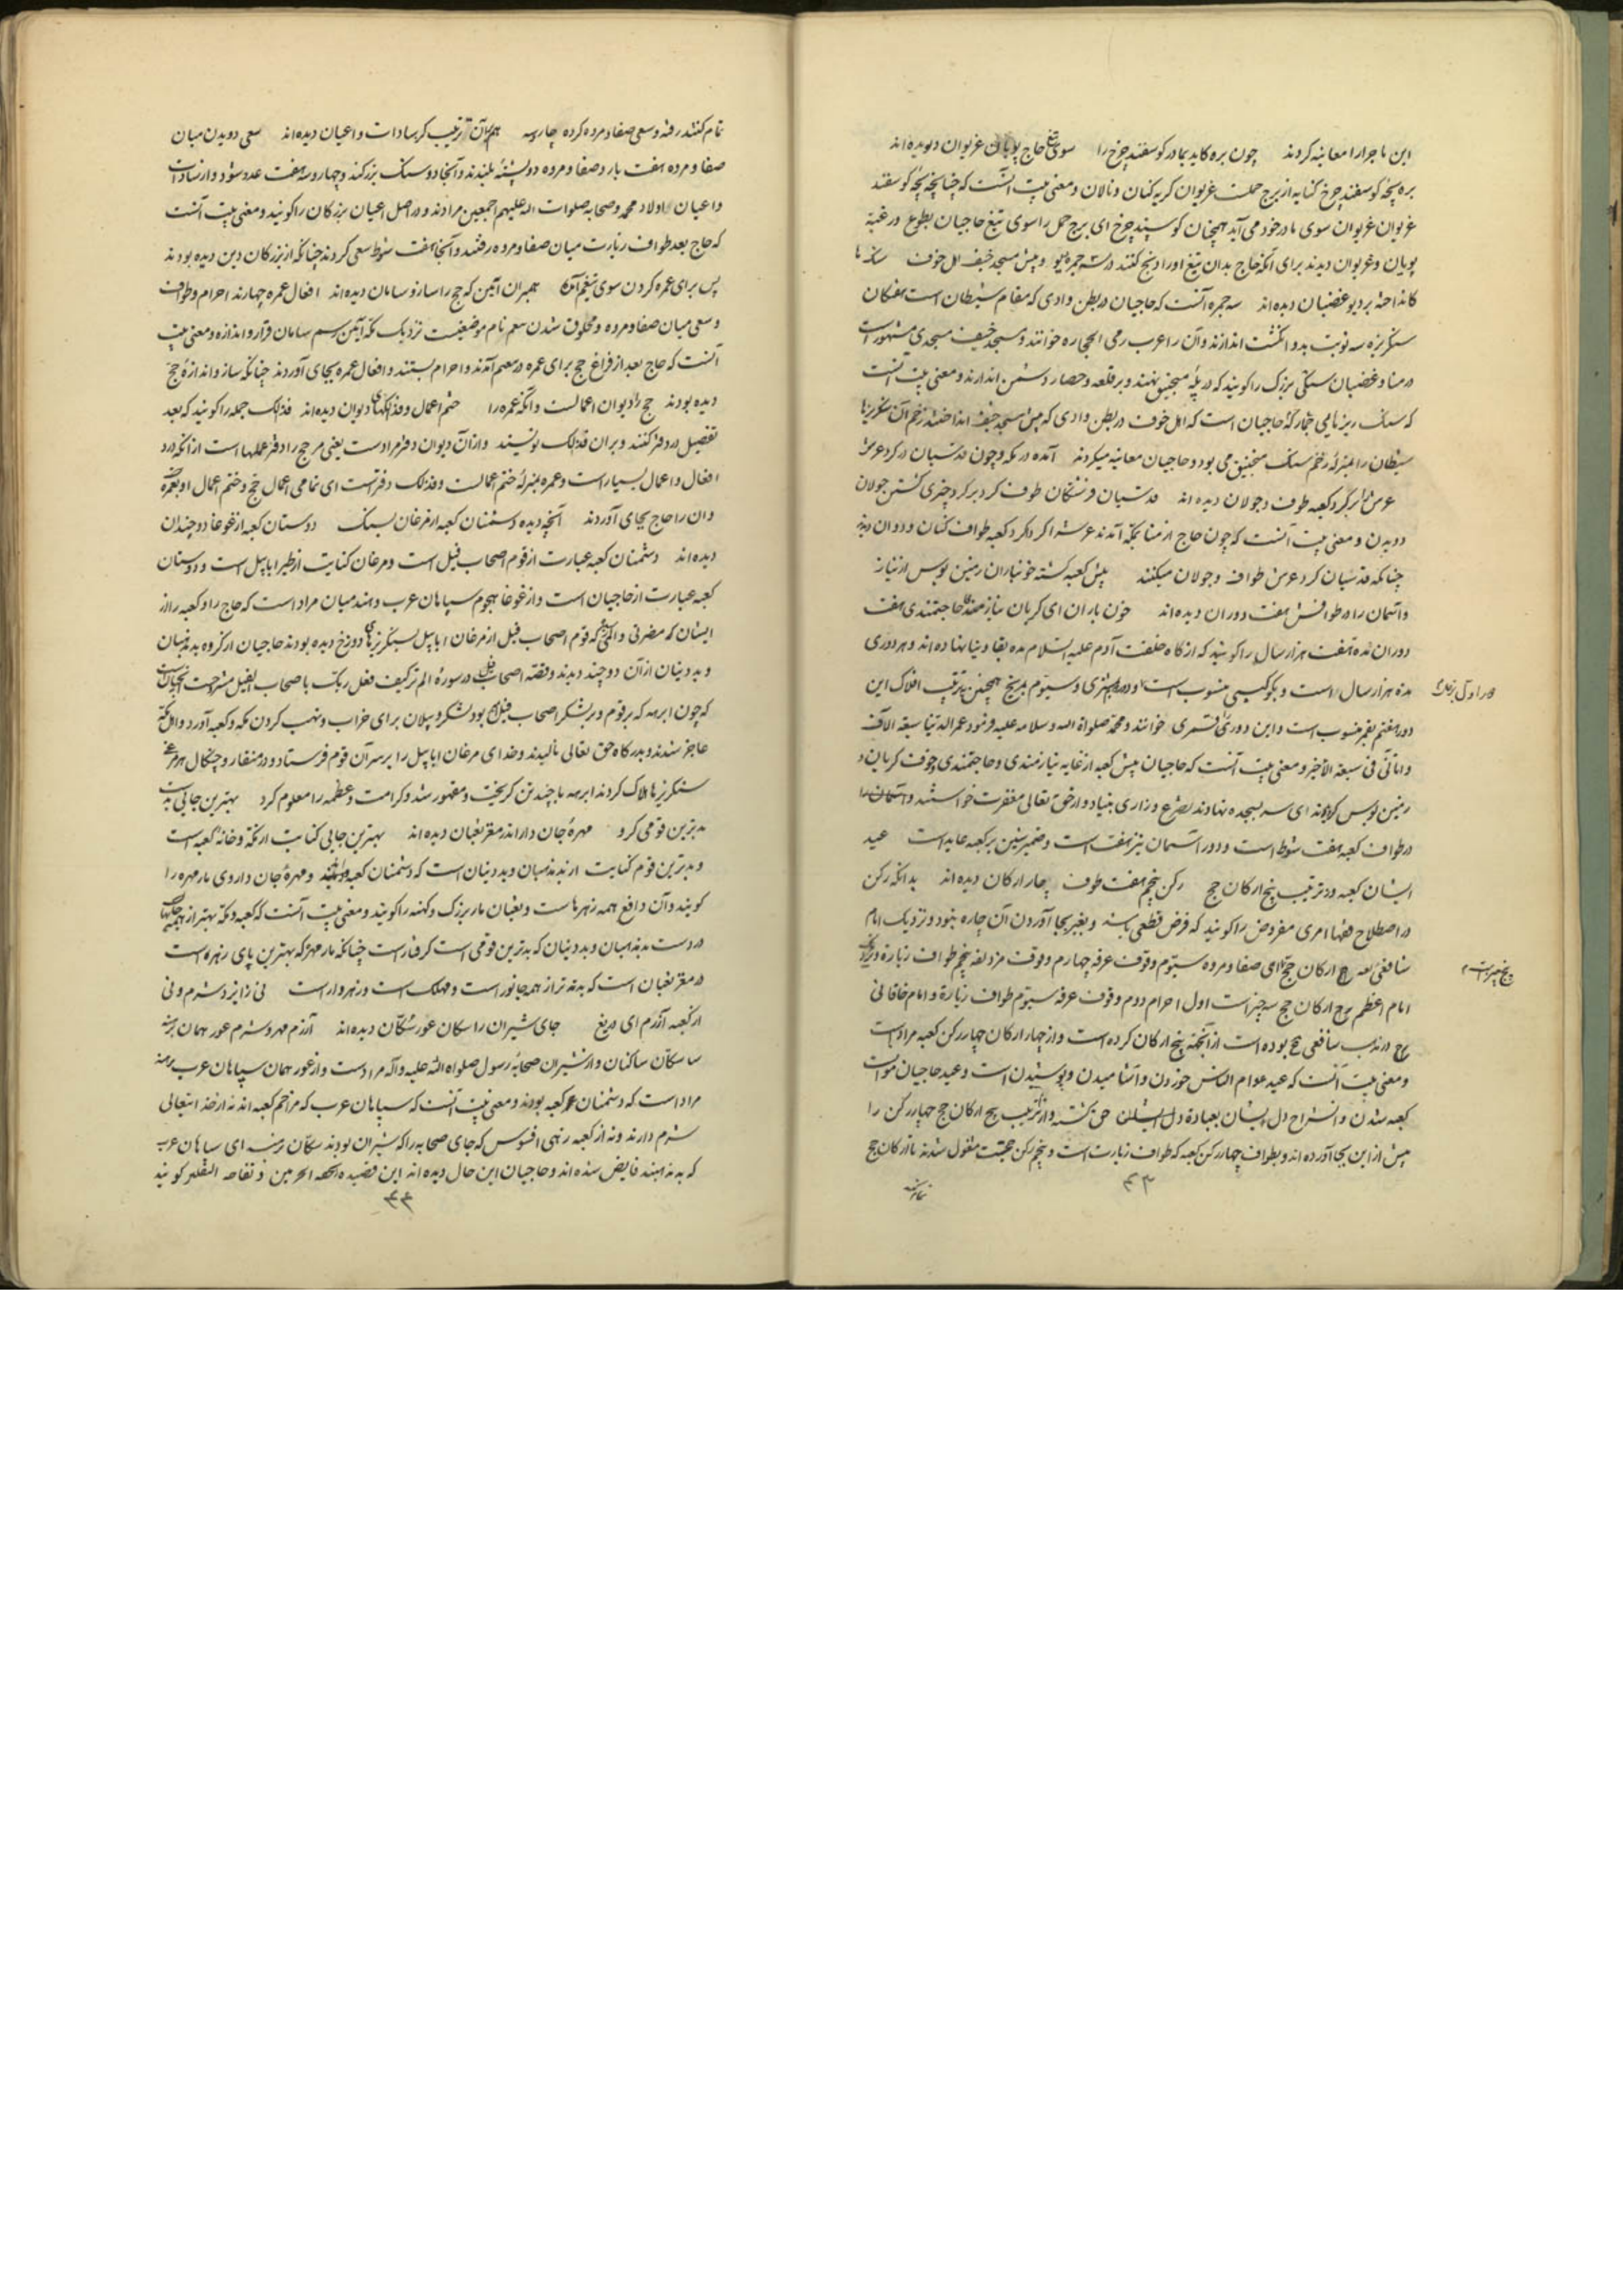 این ماجرا را معاینه کردند چون بره کاید بمادر کوسفند چرخ را سوی تیغ حاج پویان غریوان دیده اند
بره بچهٔ کوسفند چرخ کنایه از برج حملست غریوان کریه کنان و نالان و معنی بیت آنست که چنانچه بچهٔ کوسفند
غریوان غریوان سوی مادر خود می آید همچنان کوسپند چرخ ای برج حمل را سوی تیغ حاجیان بطوع و رغبة
پویان و غریوان دیدند برای آنکه حاج بدان تیغ او را ذبح کنند در سه جمره دیو و پیش مسجد خیف اهل خوف سنک ها
کانداخته بر دیو غضبان دیده اند سه جمره آنست که حاجیان در بطن وادی که مقام شیطان است هفکان
سنکریزه سه نوبت بدو انکشت اندازند و آن را عرب رمی الحجاره خوانند و مسجد خیف مسجدی مشهور است
در منا و غضبان سنکی بزرک را کویند که در پلهٔ منجنیق نهند و بر قلعه و حصار دشمن اندازند و معنی بیت آنست
که سنک ریزهایی حاجیان است که اهل خوف در بطن وادی که پیش مسجد خیف انداختند زخم آن سنکریزها
شیطان را بمنزلهٔ زخم سنک منجنیق می بود و حاجیان معاینه میکردند آمده در مکه و چون قدسیان در کرد عرش
عرش را بر کرد کعبه طوف و جولان دیده اند قدسیان فرشتکان طوف کرد بر کرد چیزی کشتن جولان
دویدن و معنی بیت آنست که چون حاج از منا بمکه آمدند عرش را کرد کرد کعبه طواف کنان و دوان دیدند
چنانکه قدسیان کرد عرش طواف و جولان میکنند پیش کعبه کشته خون باران زمین بوس از نیاز
و آسمان را در طوافش هفت دوران دیده اند خون باران ای کریان نیازمندی حاجتمندی هفت
دوران مدة هفت هزار سال را کویند که از کاه خلقت آدم علیه السلام مده بقا دنیا نهاده اند و هر دوری
مدة هزار سال است و بکوکبی منسوب است و دوم بمشتری و سیوم مریخ همچنین بترتیب افلاک این
دور هفتم بقمر منسوب است و این دور را قمری خوانند و محمد صلواة الله و سلامه علیه فرمود عمر الدنیا سبعة الاف
و انا آتی فی سبعة الاخیر و معنی بیت آنست که حاجیان پیش کعبه از غایه نیازمندی و حاجتمندی و خوف کریان و
زمین بوس کردند ای سر بسجده نهادند تضرع و زاری بنیاد و از حق تعالی مغفرت خواستند و آسمان را
در طواف کعبه هفت شوط است و دور آسمان نیز هفت است و ضمیر شین بر کعبه عاید است عید
ایشان کعبه و در ترتیب پنج ارکان حج رکن پنجم هفت طوف چار ارکان دیده اند بدانکه رکن
در اصطلاح فقها امری مفروض را کویند که فرض قطعی باشد و بغیر بجا آوردن آن چاره نبود و نزدیک امام
شافعی رحمه الله ارکان حج پنج چیز است سعی صفا و مروه سیوم وقوف عرفه چهارم وقوف مزدلفه پنجم طواف زیارة و نزدیک
امام اعظم رح ارکان حج سه چیز است اول احرام دوم وقوف عرفه سیوم طواف زیارة و امام خاقانی
رح در مذهب شافعی رح بوده است از آنجهة پنج ارکان کرده است و از چهار ارکان چهار رکن کعبه مراد است
و معنی بیت آنست که عید عوام الناس خوردن و آشامیدن و پوشیدن است و عید حاجیان
کعبه شدن و انشراح دل ایشان بعبادة و از ترتیب پنج ارکان حج چهار رکن را
پیش از این بجا آورده اند و بطواف چهار رکن کعبه که طواف زیارت است و پنجم رکن حجست مشغول شدند تا ارکان حج
۴۳
تمام کنند رفته و سعی صفا و مروه کرده چار و سه هم بر آن ترتیب کز سادات و اعیان دیده اند سعی دویدن میان
صفا و مروه هفت بار و صفا و مروه دو پشتهٔ بلندند و آنجا دو سنک بزرکند و چهار و سه هفت عدد شود و از سادات
و اعیان اولاد محمد و صحابه صلوات الله علیهم اجمعین مرادند و در اصل اعیان بزرکان را کویند و معنی بیت آنست
که حاج بعد طواف زیارت میان صفا و مروه رفتند و آنجا هفت شوط سعی کردند چنانکه از بزرکان دین دیده بودند
پس برای عمره کردن سوی تنعیم آمده همبر آن آئین که حج را ساز و سامان دیده اند افعال عمره چهارند احرام و طواف
و سعی میان صفا و مروه و محلوق شدن تنعیم نام موضعیست نزدیک مکه آیین رسم سامان قرار و اندازه و معنی بیت
آنست که حاج بعد از فراغ حج برای عمره در تنعیم آمدند و احرام بستند و افعال عمره بجای آوردند چنانکه ساز و اندازهٔ حج
دیده بودند حج را دیوان اعمالست وانکه عمره را ختم اعمال و فذلکهای دیوان دیده اند فذلک جمله را کویند که بعد
تفصیل در دفتر کنند و بر آن فذلک نویسند و از آن دیوان دفتر مرادست یعنی مر حج را دفتر عملها است از آنکه در
افعال و اعمال بسیار است و عمره بمنزلهٔ ختم اعمالست و فذلک دفترست ای تمامی اعمال حج و ختم اعمال او بعمره
و آن را حاج بجای آوردند آنچه دیده دشمنان کعبه از مرغان بسنک دوستان کعبه از غوغا دو چندان
دیده اند دشمنان کعبه عبارت از قوم اصحاب فیل است و مرغان کنایت از طیراً ابابیل است و دوستان
کعبه عبارت از حاجیان است و از غوغا هجوم سپاهان عرب و هند میان مراد است که حاج را و کعبه را از
ایشان که مضرتی و المی رسید که قوم اصحاب فیل از مرغان ابابیل بسنکریزهای دوزخ دیده بودند حاجیان از کروه بد مذهبان
و بد دینان از آن دو چند دیدند و قصه اصحاب فیل در سورهٔ الم تر کیف فعل ربک باصحاب الفیل مشروحست
که چون ابرهه که بر قوم و بر لشکر اصحاب فیل بود لشکر و پیلان برای خراب و نهب کردن مکه و کعبه آورد و اهل مکه
عاجز شدند و بدرکاه حق تعالی نالیدند و خدای مرغان ابابیل را بر سر آن قوم فرستاد و در منقار و چنکال هر مرغ
سنکریزها هلاک کردند ابرهه با چند تن کریخت و مقهور شد و کرامت و عظمه را معلوم کرد بهترین جایی بدست
بدترین قومی کرو مهرهٔ جان دار اندر مغز ثعبان دیده اند بهترین جایی کنایت از مکه و خانهٔ کعبه است
و بدترین قوم کنایت از بد مذهبان و بد دینان است که دشمنان کعبه و مهرهٔ جان داروی مار مهره را
کویند و آن دافع همه زهرهاست و ثعبان مار بزرک و کهنه را کویند و معنی بیت آنست که کعبه و مکه بهتر از همه جایها
در دست بد مذهبان و بد دینان که بدترین قومی است کرفتار است چنانکه مار مهره که بهترین پای زهره است
در مغز ثعبان است که بدتر از همه جانور است و مهلک است و زهردار است نی ز ایزد شرم و نی
از کعبه آزرم ای دریغ جای شیران را سکان عور سکّان دیده اند آزرم مهر و شرم عور همان برهنه
سکّان ساکنان و از شیران صحابهٔ رسول صلواة الله علیه و آله مرادست و از عور همان سپاهان عرب برهنه
مراد است که دشمنان کعبه بودند و معنی بیت آنست که سپاهان عرب که مزاحم کعبه اند نه از خدا تعالی
شرم دارند و نه از کعبه زهی افسوس که جای صحابه را که شیران بودند سکان برهنه ای سپاهان عرب
که بد مذهبند قابض شده اند و حاجیان این حال دیده اند این قصیده تحفه الحرمین و تفاحه الثقلین کویند
۴۴